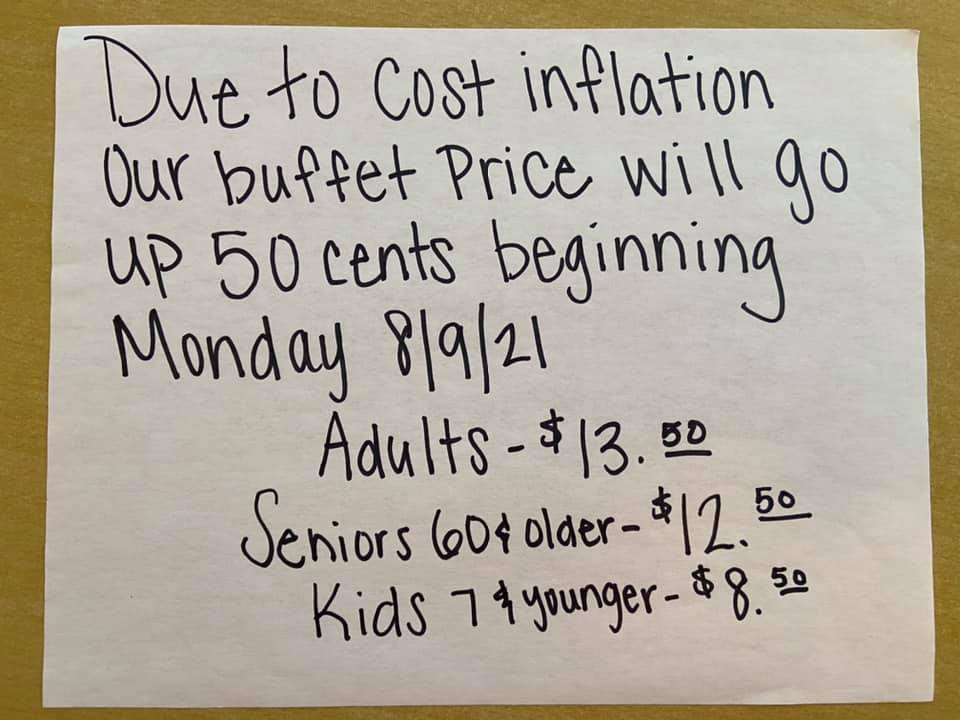 Due to Cost inflation
Our buffet Price will go
up 50 cents beginning
Monday 8/9/21
Adults - $13.50
Seniors 60 & older - $12.50
Kids 7 & younger - $8.50